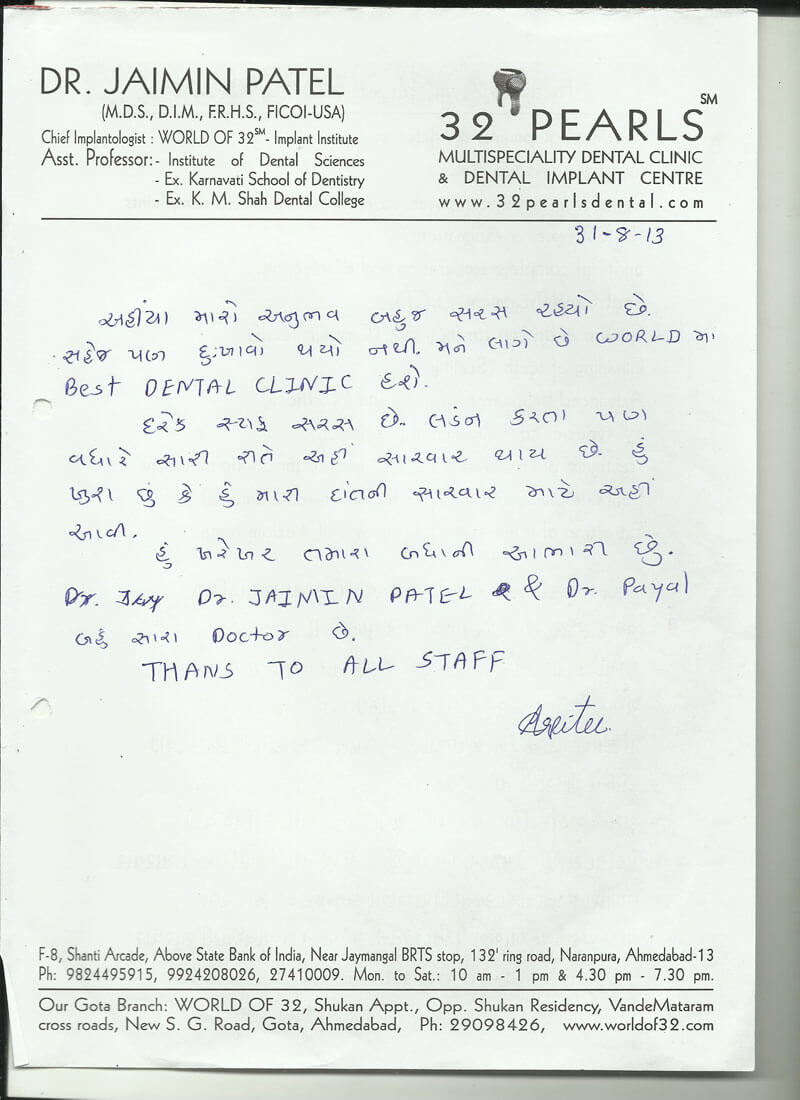 DR. JAIMIN PATEL
(M.D.S., D.I.M., F.R.H.S., FICOI-USA)
Chief Implantologist : WORLD OF 32℠- Implant Institute
Asst. Professor:- Institute of Dental Sciences
- Ex. Karnavati School of Dentistry
- Ex. K. M. Shah Dental College
32 PEARLS SM
MULTISPECIALITY DENTAL CLINIC
& DENTAL IMPLANT CENTRE
www.32pearlsdental.com
31-8-13
અહીંયા મારો અનુભવ બહુજ સરસ રહયો છે.
સહેજ પણ દુ:ખાવો થયો નથી. મને લાગે છે WORLD મા
Best DENTAL CLINIC હશે.
દરેક સ્ટાફ સરસ છે. લંડન કરતા પણ
વધારે સારી રીતે અહીં સારવાર થાય છે. હું
ખુશ છું કે હું મારા દાંતની સારવાર માટે અહીં
આવી.
હું ખરેખર તમારા બધાની આભારી છું.
Dr. JAIMIN PATEL & Dr. Payal
બહું સારા Doctor છે.
THANS TO ALL STAFF
F-8, Shanti Arcade, Above State Bank of India, Near Jaymangal BRTS stop, 132' ring road, Naranpura, Ahmedabad-13
Ph: 9824495915, 9924208026, 27410009. Mon. to Sat.: 10 am - 1 pm & 4.30 pm - 7.30 pm.
Our Gota Branch: WORLD OF 32, Shukan Appt., Opp. Shukan Residency, VandeMataram
cross roads, New S. G. Road, Gota, Ahmedabad, Ph: 29098426, www.worldof32.com